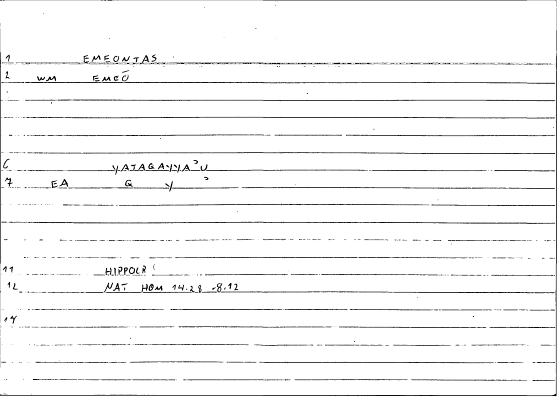 1 EMEONTAS
2 WM EMEO
6 YATAGAYYA'U
7 EA G Y '
11 HIPPOCR
12 NAT HOM 14.28 -8.12